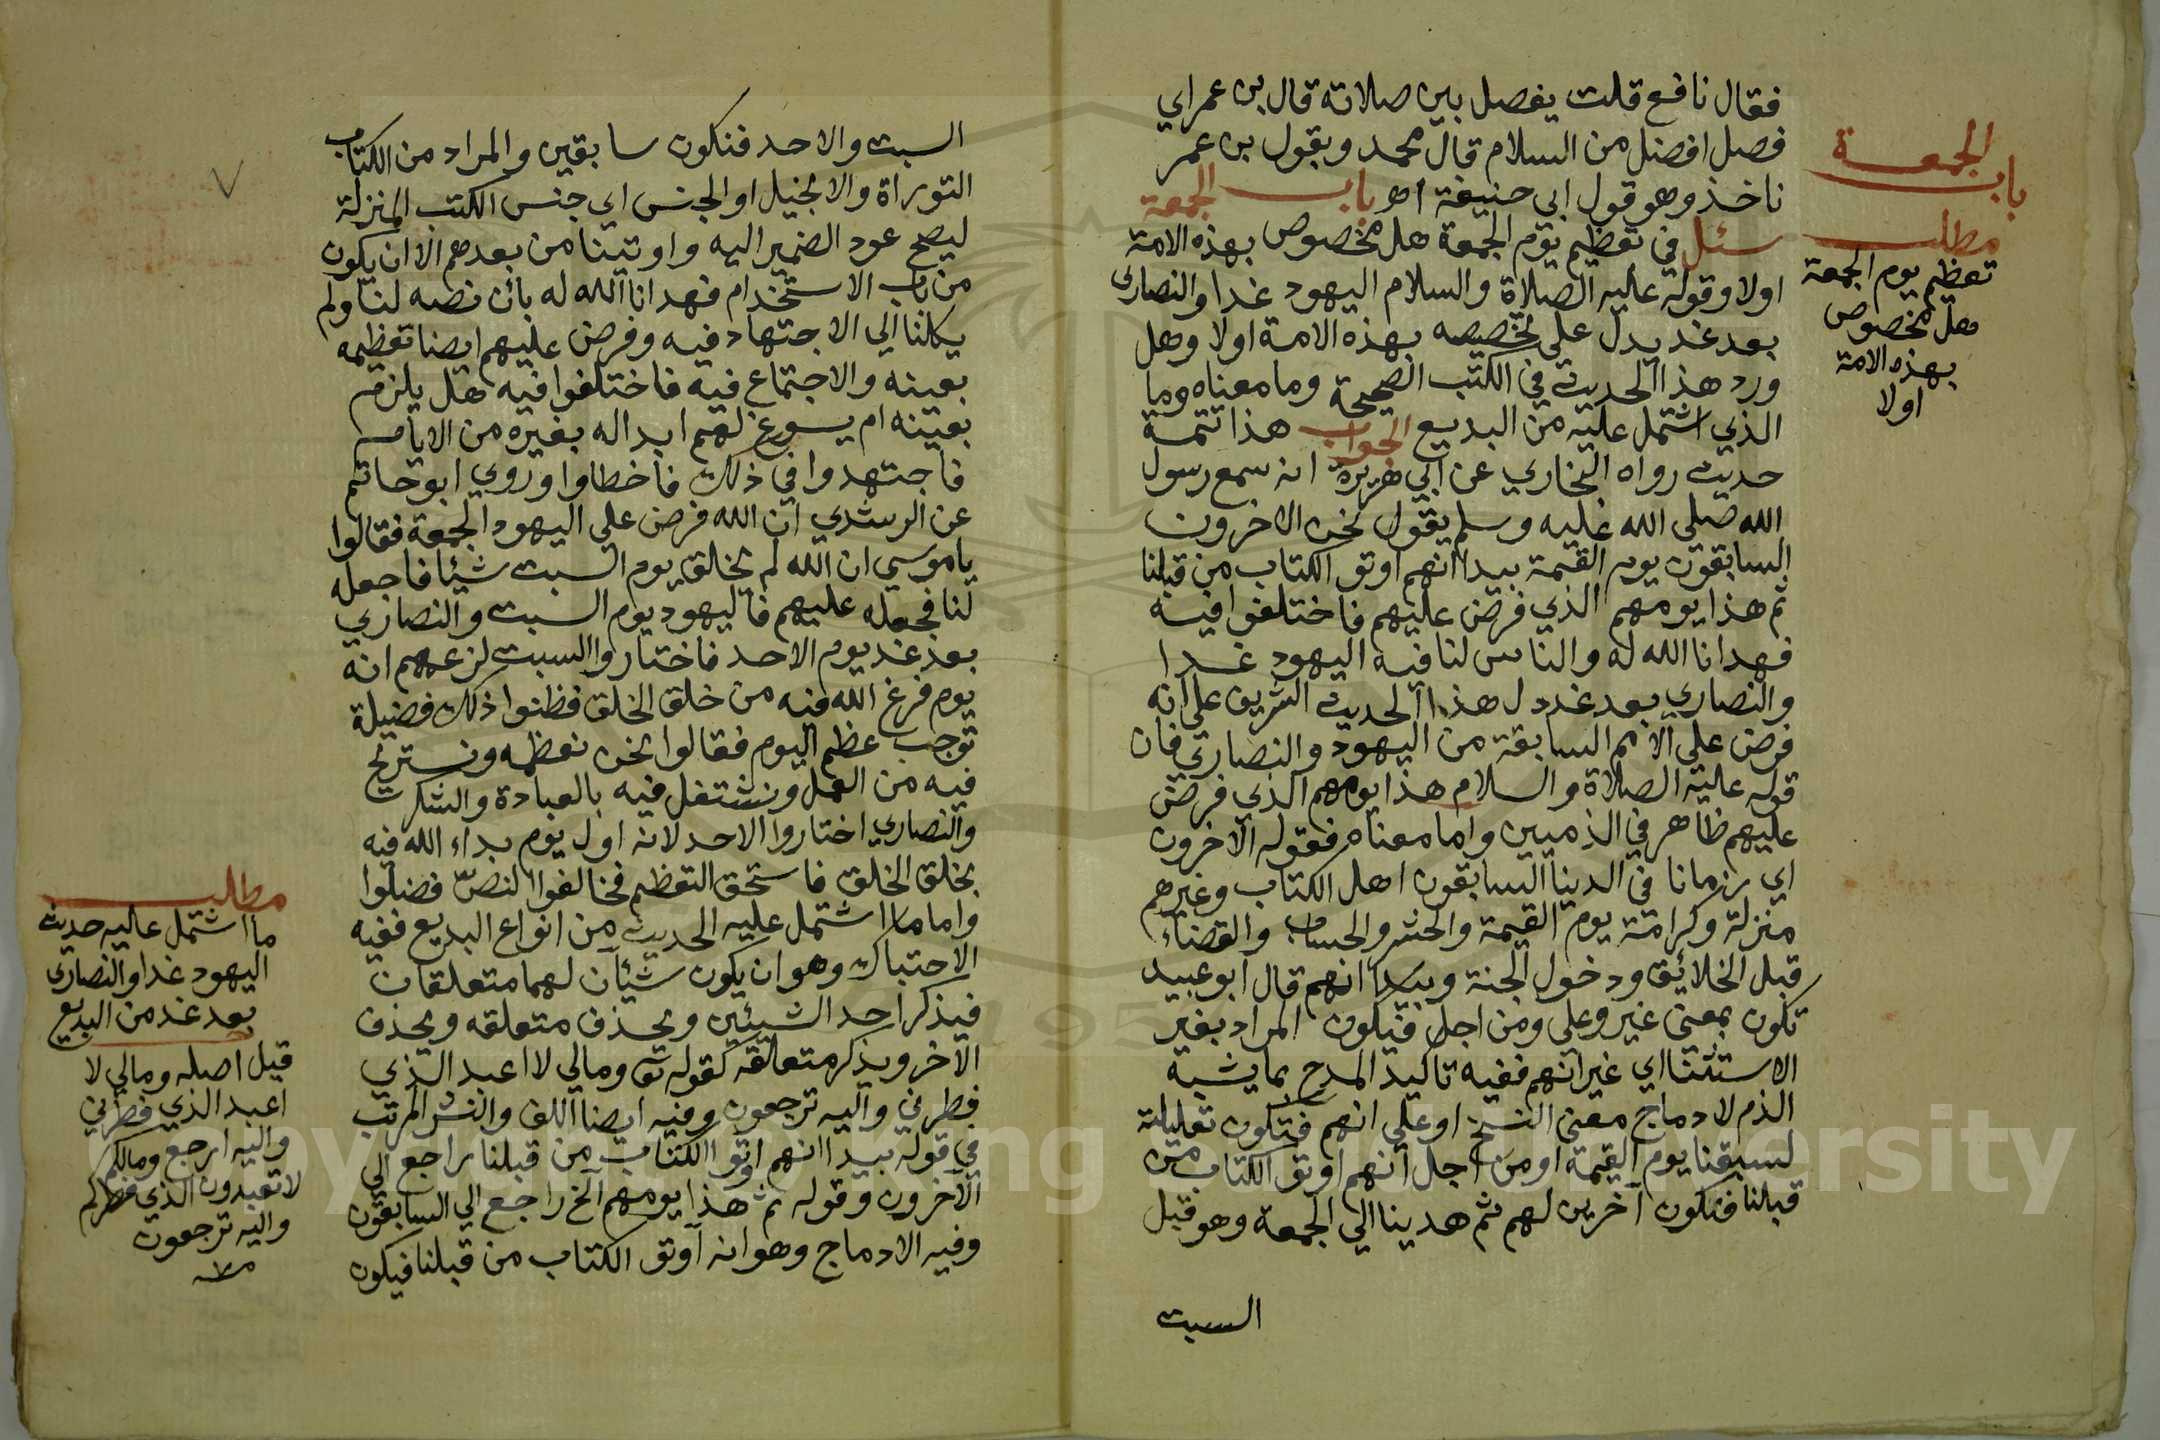 فقال نافع قلت يفصل بين صلاته قال بن عمر اي
فصل افضل من السلام قال محمد وبقول بن عمر
ناخذ وهو قول ابي حنيفة اه باب الجمعة
سئل في تعظيم يوم الجمعة هل مخصوص بهذه الامة
اولا وقوله عليه الصلاة والسلام اليهود غدا والنصارى
بعد غد يدل على تخصيصه بهذه الامة اولا وهل
ورد هذا الحديث في الكتب الصحيحة وما معناه وما
الذي اشتمل عليه من البديع الجواب هذا تتمة
حديث رواه البخاري عن ابي هريرة انه سمع رسول
الله صلى الله عليه وسلم يقول نحن الاخرون
السابقون يوم القيمة بيد انهم اوتو الكتاب من قبلنا
ثم هذا يومهم الذي فرض عليهم فاختلفوا فيه
فهدانا الله له والناس لنا فيه اليهود غدا
والنصاري بعد غد دل هذا الحديث الشريف على انه
فرض على الامم السابقة من اليهود والنصاري فان
قوله عليه الصلاة والسلام هذا يومهم الذي فرض
عليهم ظاهر في الذميين واما معناه فقوله الاخرون
اي زمانا في الدنيا السابقون اهل الكتاب وغيرهم
منزلة وكرامة يوم القيمة والحشر والحساب والقضاء
قبل الخلائق ودخول الجنة وبيد انهم قال ابو عبيد
تكون بمعنى غير وعلى ومن اجل فيكون المراد بغير
الاستثنا اي غير انهم ففيه تاكيد المدح بما يشبه
الذم لادماج معنى النسخ او على انهم فتكون تعليلة
لسبقنا يوم القيمة او من اجل انهم اوتو الكتاب من
قبلنا فتكون آخرين لهم ثم هدينا الي الجمعة وهو قبل
السبت
باب الجمعة
مطلب
تعظيم يوم الجمعة
هل مخصوص
بهذه الامة
اولا
السبت والاحد فنكون سابقين والمراد من الكتاب
التوراة والانجيل او الجنس اي جنس الكتب المنزلة
ليصح عود الضمير اليه واوتينا من بعدهم الا ان يكون
من باب الاستخدام فهدانا الله له بأن نصه لنا ولم
يكلنا الي الاجتهاد فيه وفرض عليهم ايضا تعظيمه
بعينه والاجتماع فيه فاختلفوا فيه هل يلزم
بعينه ام يسوغ لهم ابداله بغيره من الايام
فاجتهدوا في ذلك فاخطاوا وروي ابو حاتم
عن الرشدي ان الله فرض على اليهود الجمعة فقالوا
يا موسي ان الله لم يخلق يوم السبت شيئا فاجعله
لنا فجعله عليهم فاليهود يوم السبت والنصاري
بعد غد يوم الاحد فاختاروا السبت لزعمهم انه
يوم فرغ الله فيه من خلق الخلق فظنوا ذلك فضيلة
توجب عظم اليوم فقالوا نحن نعظمه ونستريح
فيه من العمل ونشتغل فيه بالعبادة والشكر
والنصاري اختاروا الاحد لانه اول يوم بداء الله فيه
بخلق الخلق فاستحق التعظيم فخالفوا النصّ فضلوا
واما ما اشتمل عليه الحديث من انواع البديع ففيه
الاحتباك وهو ان يكون شيئان لهما متعلقان
فيذكر احد الشيئين ويحذف متعلقه ويحذف
الآخر ويذكر متعلقه كقوله تعا ومالي لا اعبد الذي
فطرني واليه ترجعون وفيه ايضا اللف والنشر المرتب
في قوله بيد انهم اوتوا الكتاب من قبلنا راجع الى
الآخرون وقوله ثم هذا يومهم الخ راجع الي السابقون
وفيه الادماج وهو انه اوتو الكتاب من قبلنا فيكون
مطلب
ما اشتمل عاليه حديث
اليهود غدا والنصارى
بعد غد من البديع
قيل اصله ومالي لا
اعبد الذي فطرني
واليه ارجع ومالكم
لا تعبدون الذي فطركم
واليه ترجعون
1957
Copyright © King Saud University